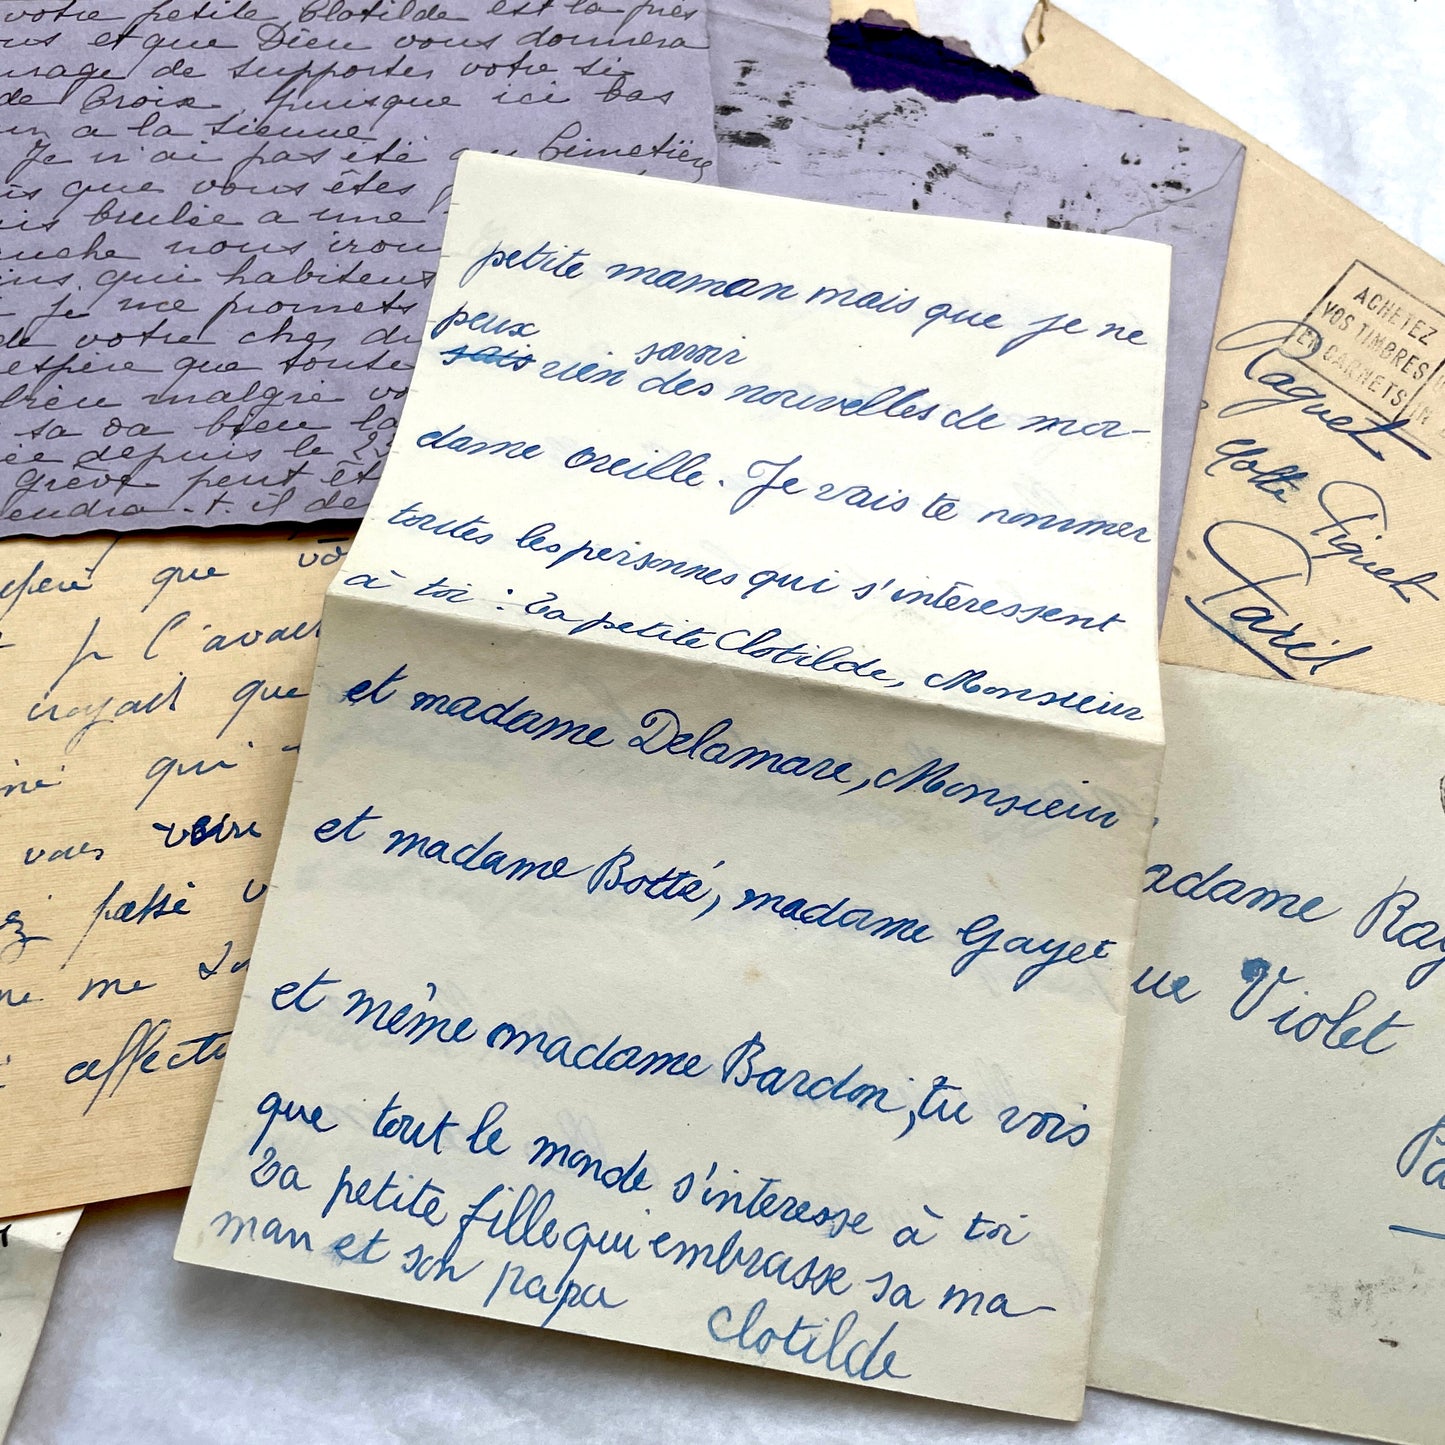 votre petite Clotilde est la près
ous et que Dieu vous donnera
urage de supporter votre si
de Croix, puisque ici bas
un a la sienne
Je n'ai pas été au Cimetière
is que vous êtes
uis brulée a une
nous irons
ins qui habitent
je me promets
de votre cher
espère que toute
malgré vo
sa va bien la
ée depuis le 23
grève peut êt
endra-t-il de
que vo
je l'avais
croyait que
qui
vous voire
passé v
me
affectu
petite maman mais que je ne
peux savoir
sais rien des nouvelles de ma-
dame oreille. Je vais te nommer
toutes les personnes qui s'intéressent
à toi : Ta petite Clotilde, Monsieur
et madame Delamare, Monsieur
et madame Botté, madame Gayet
et même madame Bardon, tu vois
que tout le monde s'intéresse à toi
Ta petite fille qui embrasse sa ma-
man et son papa
Clotilde
ACHETEZ
VOS TIMBRES
EN CARNETS
Raguet
Motte Piquet
Paris
adame Rag
ue Violet
Pa